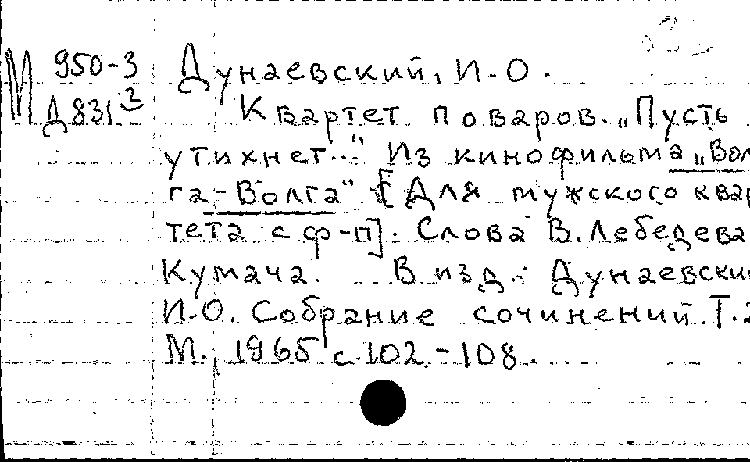 М 950-3 Дунаевский, И.О.
Д 831 2 Квартет поваров. „Пусть
утихнет..." Из кинофильма „Вол
га-Волга" [Для мужского квар
тета с ф-п]. Слова В. Лебедева
Кумача. В изд.: Дунаевский
И.О. Собрание сочинений. Т.2
М., 1965 с 102-108.